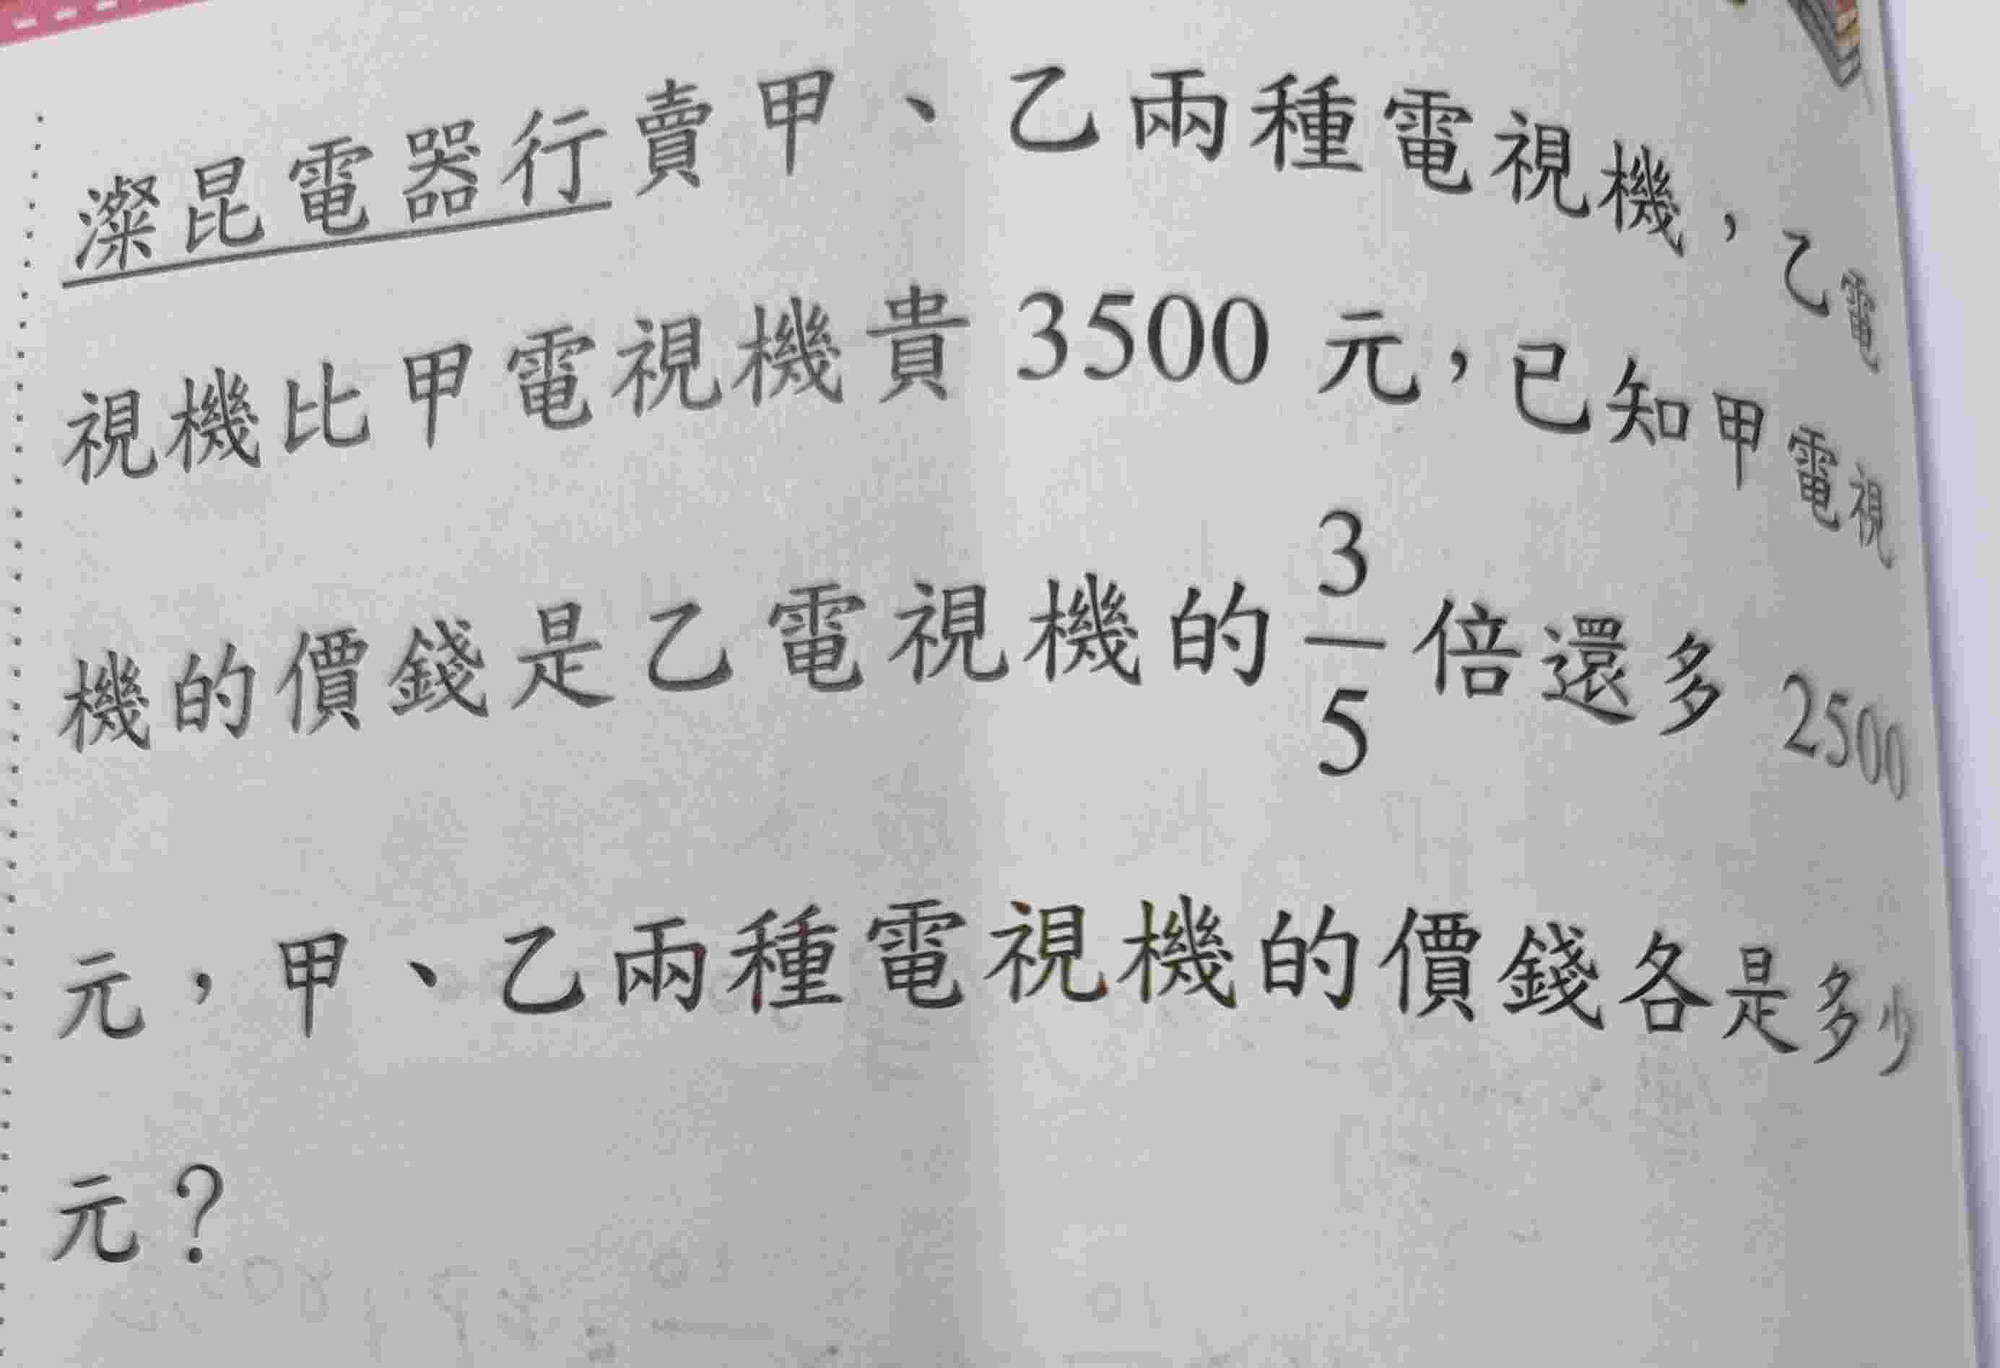 燦昆電器行賣甲、乙兩種電視機，乙電
視機比甲電視機貴 3500 元，已知甲電視
機的價錢是乙電視機的 3/5 倍還多 2500
元，甲、乙兩種電視機的價錢各是多少
元？